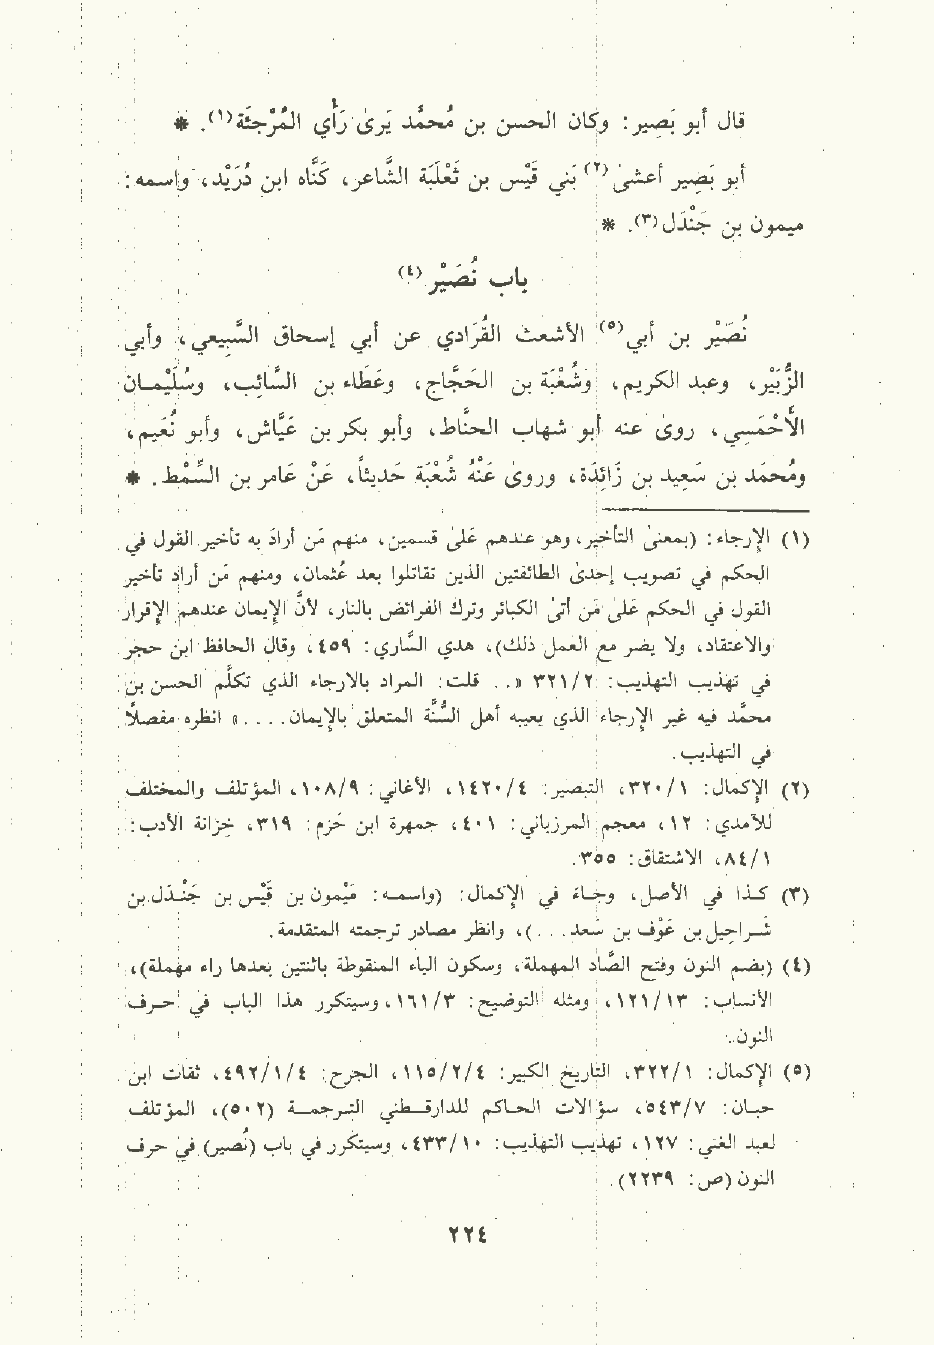 قال أبو بَصِير: وكان الحسن بن مُحمَّد يَرىٰ رَأْي المُرْجِئَة(١). *
أبو بَصِير أعشىٰ(٢) بَني قَيْس بن ثَعْلَبَة الشاعر، كَنَّاه ابن دُرَيْد، واسمه:
ميمون بن جَنْدَل(٣). *
باب نُصَيْر(٤)
نُصَيْر بن أبي(٥) الأشعث القُرَادي عن أبي إسحاق السَّبيعي، وأبي
الزُّبَيْر، وعبد الكريم، وشُعْبَة بن الحَجَّاج، وعَطَاء بن السَّائِب، وسُلَيْمان
الأَحْمَسي، روىٰ عنه أبو شهاب الحنَّاط، وأبو بكر بن عَيَّاش، وأبو نُعَيم،
ومُحمَد بن سَعِيد بن زَائِدَة، وروىٰ عَنْهُ شُعْبَة حَديثاً، عَنْ عَامر بن السِّمْط. *
(١) الإرجاء: (بمعنىٰ التأخير، وهو عندهم علىٰ قسمين، منهم مَن أرادَ به تأخير القول في
الحكم في تصويب إحدىٰ الطائفتين الذين تقاتلوا بعد عُثمان، ومنهم مَن أراد تأخير
القول في الحكم علىٰ مَن أتىٰ الكبائر وترك الفرائض بالنار، لأنَّ الإيمان عندهم الإقرار
والاعتقاد، ولا يضر مع العمل ذلك)، هدي السَّاري: ٤٥٩، وقال الحافظ ابن حجر
في تهذيب التهذيب: ٣٢١/٢ «.. قلت: المراد بالارجاء الذي تكلَّم الحسن بن
محمَّد فيه غير الإرجاء الذي يعيبه أهل السُّنَّة المتعلق بالإيمان....» انظره مفصلاً
في التهذيب.
(٢) الإكمال: ٣٢٠/١، التبصير: ١٤٢٠/٤، الأغاني: ١٠٨/٩، المؤتلف والمختلف
للآمدي: ١٢، معجم المرزباني: ٤٠١، جمهرة ابن حَزم: ٣١٩، خزانة الأدب:
٨٤/١، الاشتقاق: ٣٥٥.
(٣) كذا في الأصل، وجاء في الإكمال: (واسمه: مَيْمون بن قَيْس بن جَنْدَل بن
شراحِيل بن عَوْف بن سَعد...)، وانظر مصادر ترجمته المتقدمة.
(٤) (بضم النون وفتح الصَّاد المهملة، وسكون الياء المنقوطة باثنتين بعدها راء مهملة)،
الأنساب: ١٢١/١٣، ومثله التوضيح: ١٦١/٣، وسيتكرر هذا الباب في حرف
النون.
(٥) الإكمال: ٣٢٢/١، التاريخ الكبير: ١١٥/٢/٤، الجرح: ٤٩٢/١/٤، ثقات ابن
حبان: ٥٤٣/٧، سؤالات الحاكم للدارقطني الترجمة (٥٠٢)، المؤتلف
لعبد الغني: ١٢٧، تهذيب التهذيب: ٤٣٣/١٠، وسيتكرر في باب (نُصير) في حرف
النون (ص: ٢٢٣٩).
٢٢٤